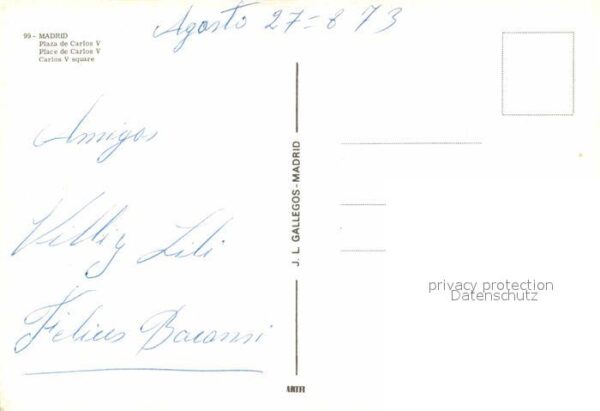 Agosto 27=8 73
99 - MADRID
Plaza de Carlos V
Place de Carlos V
Carlos V square
Amigos
Villiy Lili
Felices
J. L. GALLEGOS - MADRID
privacy protection
Datenschutz